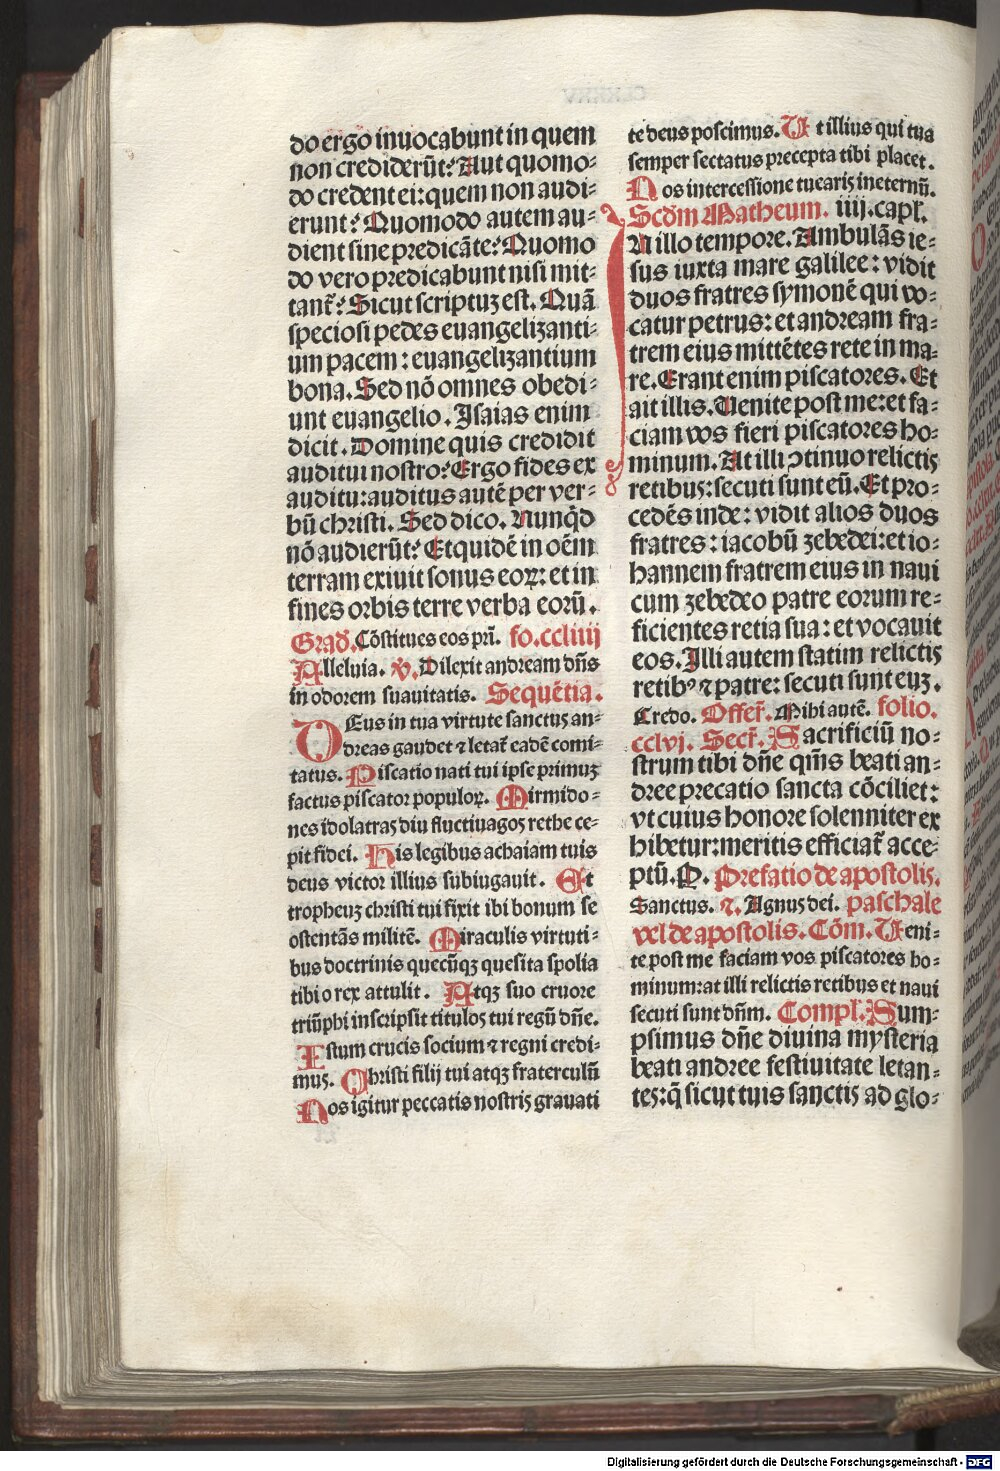 do ergo inuocabunt in quem
non crediderūt? Aut quomo-
do credent ei: quem non audi-
erunt? Quomodo autem au-
dient sine predicāte? Quomo
do vero predicabunt nisi mit-
tant᷑? Sicut scriptuʒ est. Quā
speciosi pedes euangelizanti-
um pacem: euangelizantium
bona. Sed nō omnes obedi-
unt euangelio. Isaias enim
dicit. Domine quis credidit
auditui nostro? Ergo fides ex
auditu: auditus autē per ver-
bū christi. Sed dico. Nunq̄d
nō audierūt? Et quidē in oēm
terram exiuit sonus eoꝝ: et in
fines orbis terre verba eorū.
Grad̄. Cōstitues eos pri᷑. fo. ccliiij
Alleluia. ℣. Dilexit andream dn̄s
in odorem suauitatis. Sequētia.
DEus in tua virtute sanctus an-
dreas gaudet ⁊ letat᷑ eadē comi-
tatus. Piscatio nati tui ipse primuʒ
factus piscator populoꝝ. Mirmido-
nes idolatras diu fluctiuagos rethe ce-
pit fidei. His legibus achaiam tuis
deus victor illius subiugauit. Et
tropheuʒ christi tui fixit ibi bonum se
ostentās militē. Miraculis virtuti-
bus doctrinis quecūqʒ quesita spolia
tibi o rex attulit. Atqʒ suo cruore
triūphi inscripsit titulos tui regū dn̄e.
Istum crucis socium ⁊ regni credi-
mus. Christi filij tui atqʒ fraterculū
Nos igitur peccatis nostris grauati
te deus poscimus. Ut illius qui tua
semper sectatus precepta tibi placet.
Nos intercessione tuearis in eternū.
Scd̄m Matheum. iiij. capl᷑.
IN illo tempore. Ambulās ie-
sus iuxta mare galilee: vidit
duos fratres symonē qui vo-
catur petrus: et andream fra-
trem eius mittētes rete in ma-
re. Erant enim piscatores. Et
ait illis. Uenite post me: et fa-
ciam vos fieri piscatores ho-
minum. At illi ꝯtinuo relictis
retibus: secuti sunt eū. Et pro-
cedēs inde: vidit alios duos
fratres: iacobū zebedei: et io-
hannem fratrem eius in naui
cum zebedeo patre eorum re-
ficientes retia sua: et vocauit
eos. Illi autem statim relictis
retibꝰ ⁊ patre: secuti sunt euʒ.
Credo. Offer᷑. Mihi autē. folio.
cclvj. Secr᷑. Sacrificiū no-
strum tibi dn̄e qm̄s beati an-
dree precatio sancta cōciliet:
vt cuius honore solenniter ex
hibetur: meritis efficiat᷑ acce-
ptū. P. Prefatio de apostolis.
Sanctus. ⁊. Agnus dei. paschale
vel de apostolis. Cōm. Ueni-
te post me faciam vos piscatores ho-
minum: at illi relictis retibus et naui
secuti sunt dn̄m. Compl᷑. Sum-
psimus dn̄e diuina mysteria
beati andree festiuitate letan-
tes: q̄ sicut tuis sanctis ad glo-
Digitalisierung gefördert durch die Deutsche Forschungsgemeinschaft - DFG